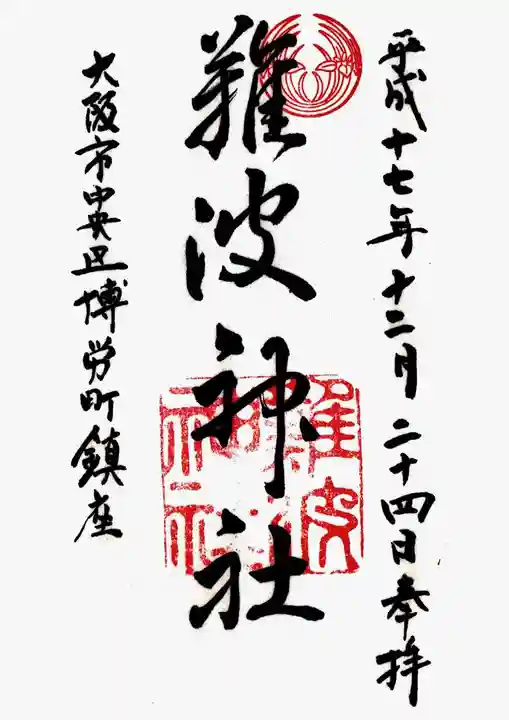 平成十七年十二月二十四日奉拝
難波神社
難波神社
大阪市中央区博労町鎮座